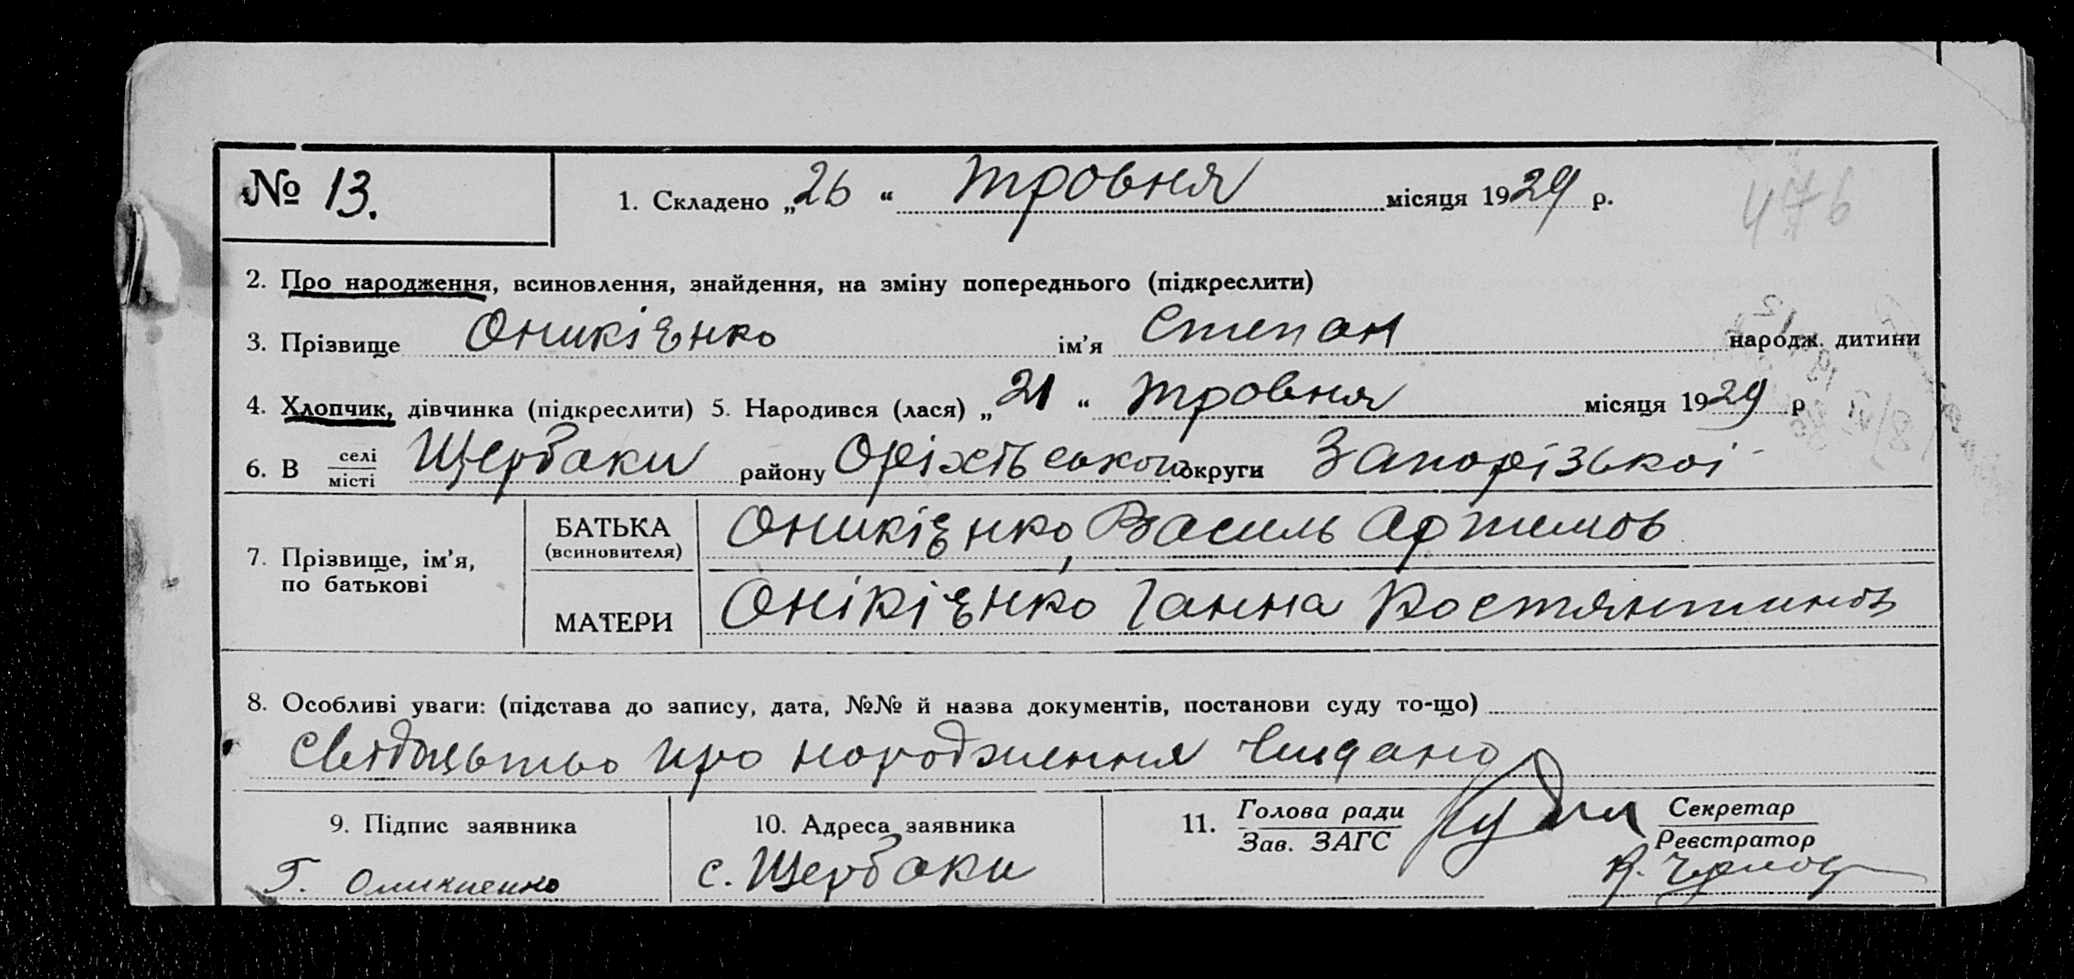 № 13. 1. Складено „26 “ тровня місяця 1929 р.
476
2. Про народження, всиновлення, знайдення, на зміну попереднього (підкреслити)
3. Прізвище Оникієнко ім’я Степан народж. дитини
4. Хлопчик, дівчинка (підкреслити) 5. Народився (лася) „21 “ тровня місяця 1929 р
6. В селі місті Щербаки району Оріхівського округи Запорізької
7. Прізвище, ім’я, по батькові
БАТЬКА (всиновителя) Оникієнко, Василь Артимов
МАТЕРИ Онікієнко Ганна Костянтинов
8. Особливі уваги: (підстава до запису, дата, №№ й назва документів, постанови суду то-що)
свідоцьтво про народження видано
9. Підпис заявника 10. Адреса заявника 11. Голова ради Зав. ЗАГС Секретар Реєстратор
Г. Оникиенко с. Щербаки